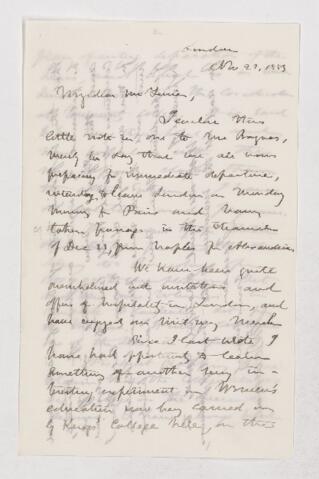 London
Nov. 23, 1883
My dear Mr
I enclose this
little note in one to Mr
merely to say that we are now
preparing for immediate departure,
to leave London on Monday
morning for Paris and having
taken passage in the steamer
of Dec 22, from Naples for Alexandria.
We have been quite
overwhelmed with invitations and
offers of hospitality in London, and
have enjoyed our visit very much
Since I last wrote I
have had opportunity to learn
something of another very in-
teresting experiment in Women's
education now being carried on
by Kings' College here, on the